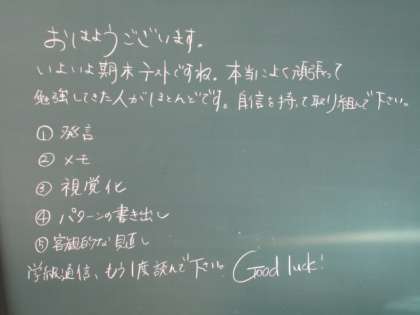 おはようございます。
いよいよ期末テストですね。本当によく頑張って
勉強してきた人がほとんどです。自信を持って取り組んで下さい。
① 発言
② メモ
③ 視覚化
④ パターンの書き出し
⑤ 客観的な見直し
学級通信、もう1度読んで下さい。 Good luck!